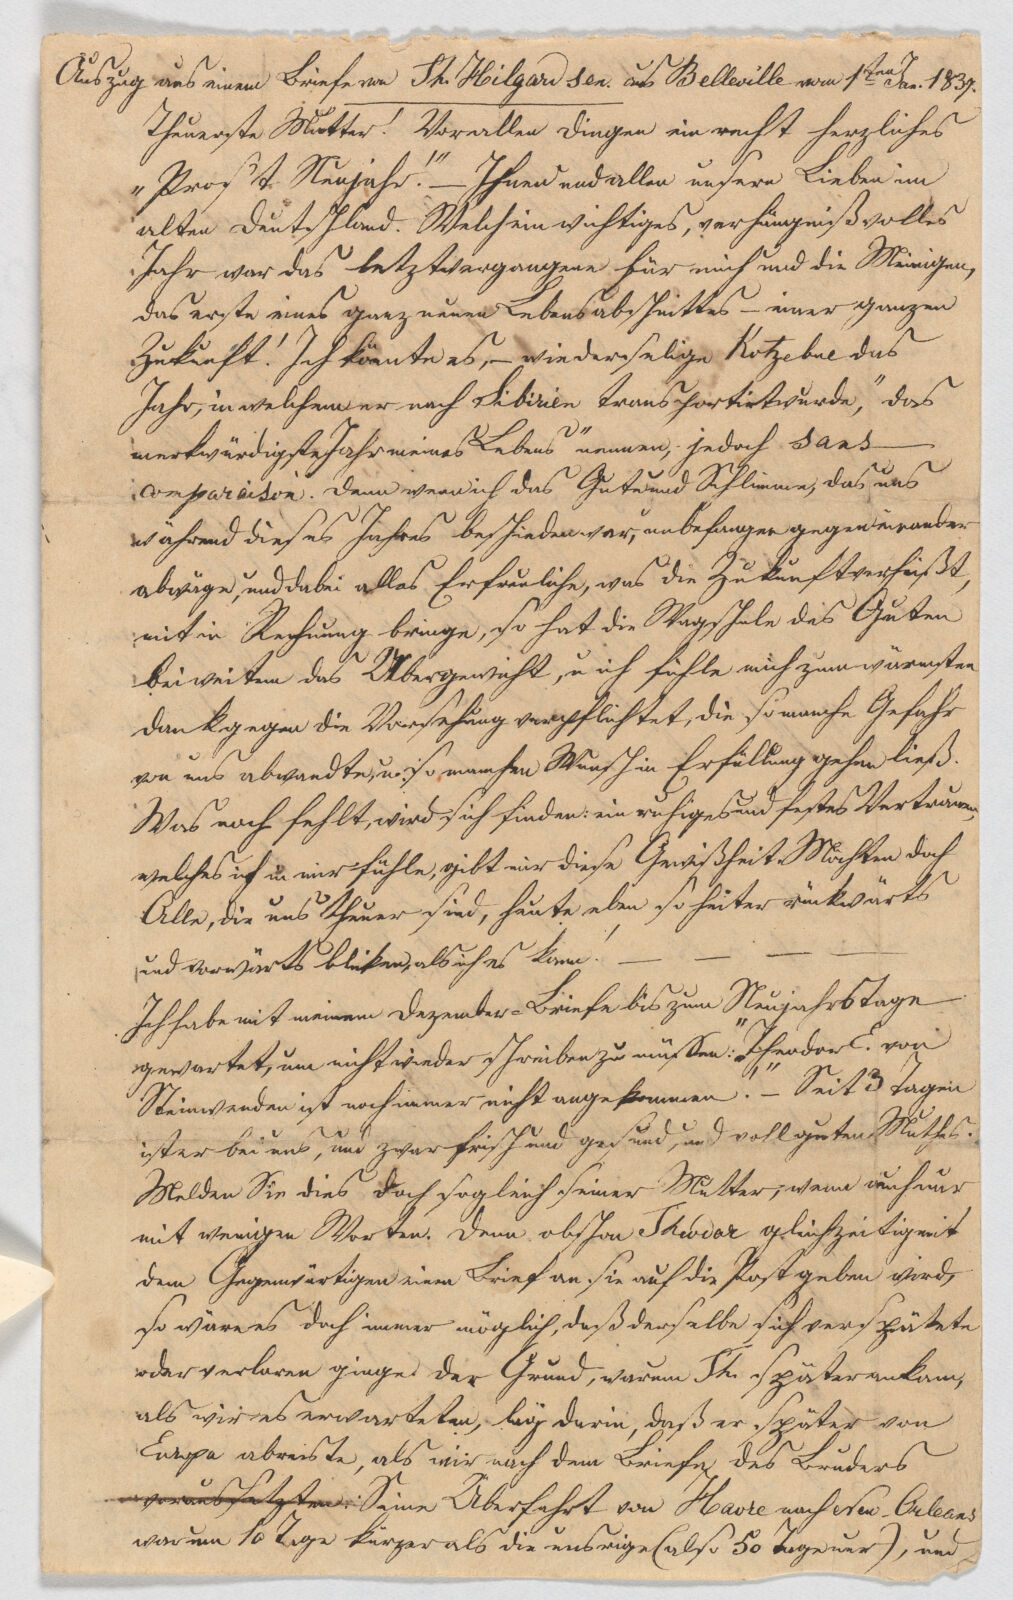 Auszug aus einem Briefe von Th. Hilgard sen. aus Belleville vom 1sten Jan. 1837.
Theuerste Mutter! Vor allen Dingen ein recht herzliches
„Pros't Neujahr!" — Ihnen und allen unsern Lieben im
alten Deutschland. Welch ein wichtiges, verhängnißvolles
Jahr war das letztvergangene für mich und die Meinigen,
das erste eines ganz neuen Lebensabschnittes – einer ganzen
Zukunft! Ich könnte es, – wie der selige Kotzebue das
Jahr, in welchem er nach Sibirien transportirt wurde, „das
merkwürdigste Jahr meines Lebens" nennen, jedoch sans
comparaison. Denn wenn ich das Gute und Schlimme, das uns
während dieses Jahres beschieden war, unbefangen gegen einander
abwäge, und dabei alles Erfreuliche, was die Zukunft verheißt,
mit in Rechnung bringe, so hat die Wagschale des Guten
bei weitem das Übergewicht, u ich fühle mich zum wärmsten
Dank gegen die Vorsehung verpflichtet, die so manche Gefahr
von uns abwandte, u. so manchen Wunsch in Erfüllung gehen ließ.
Was noch fehlt, wird sich finden: ein ruhiges und festes Vertrauen,
welches ich in mir fühle, gibt mir diese Gewißheit. Möchten doch
Alle, die uns theuer sind, heute eben so heiter rückwärts
und vorwärts blicken, als ich es kann! — — — —
Ich habe mit meinem Dezember-Briefe bis zum Neujahrstage
gewartet, um nicht wieder schreiben zu müssen: „Theodor E. von
Steinwenden ist noch immer nicht angekommen!" – Seit 3 Tagen
ist er bei uns, und zwar frisch und gesund, und voll guten Muthes.
Melden Sie dies doch sogleich seiner Mutter, wenn auch nur
mit wenigen Worten. Denn obschon Theodor gleichzeitig mit
dem Gegenwärtigen einen Brief an sie auf die Post geben wird,
so wäre es doch immer möglich, daß derselbe sich verspätete
oder verloren ginge. Der Grund, warum Th. später ankam,
als wir es erwarteten, lag darin, daß er später von
Europa abreiste, als wir nach dem Briefe des Bruders
voraussetzten. Seine Überfahrt von Havre nach New-Orleans
war um 10 Tage kürzer als die unsrige (also 50 Tage nur), und